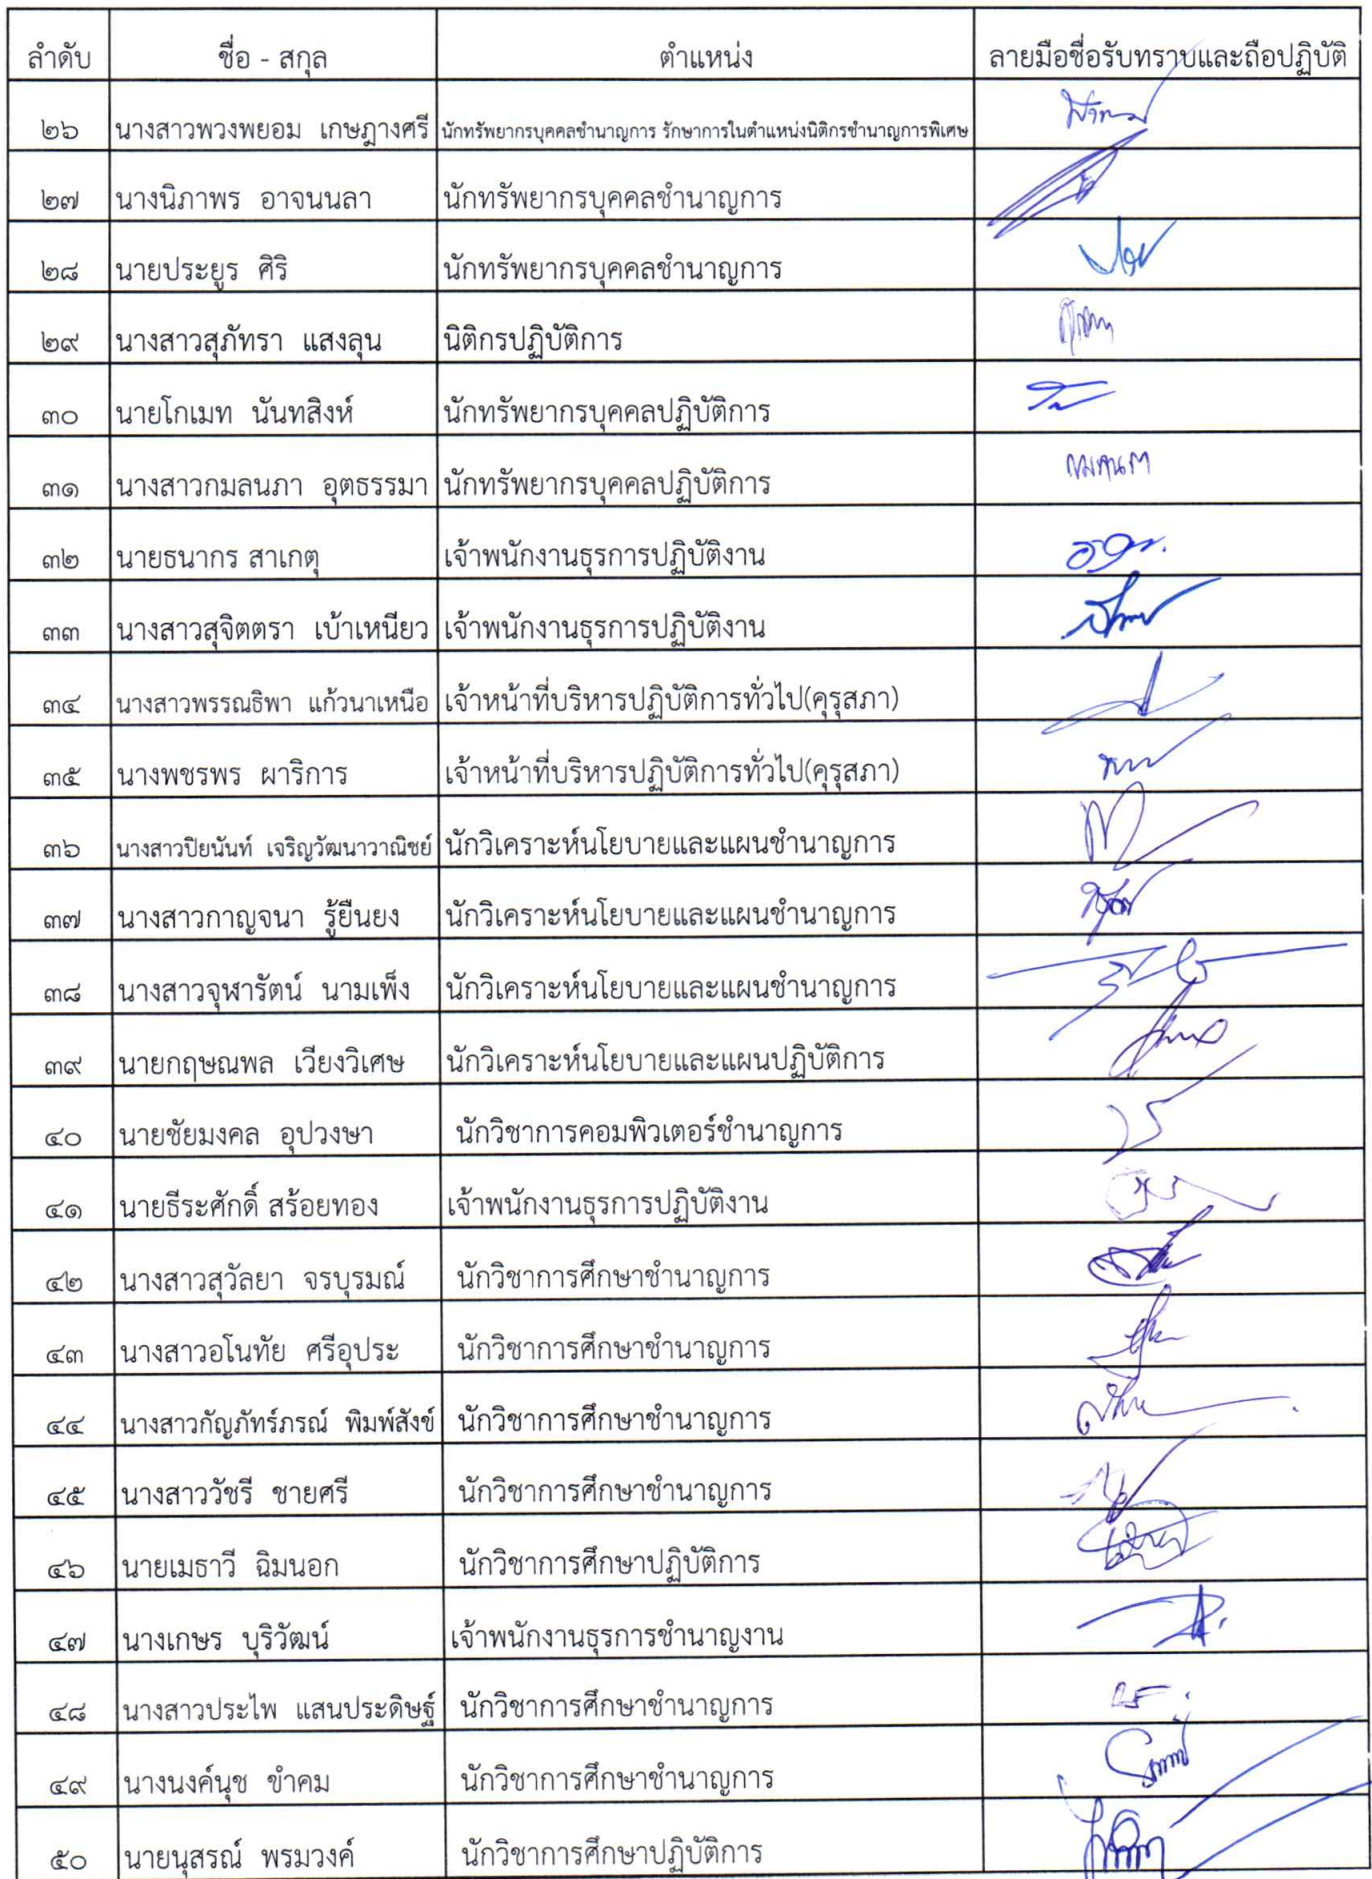 ลำดับ ชื่อ - สกุล ตำแหน่ง ลายมือชื่อรับทราบและถือปฏิบัติ
๒๖ นางสาวพวงพยอม เกษฎางศรี นักทรัพยากรบุคคลชำนาญการ รักษาการในตำแหน่งนิติกรชำนาญการพิเศษ
๒๗ นางนิภาพร อาจนนลา นักทรัพยากรบุคคลชำนาญการ
๒๘ นายประยูร ศิริ นักทรัพยากรบุคคลชำนาญการ
๒๙ นางสาวสุภัทรา แสงลุน นิติกรปฏิบัติการ
๓๐ นายโกเมท นันทสิงห์ นักทรัพยากรบุคคลปฏิบัติการ
๓๑ นางสาวกมลนภา อุตธรรมา นักทรัพยากรบุคคลปฏิบัติการ
๓๒ นายธนากร สาเกตุ เจ้าพนักงานธุรการปฏิบัติงาน
๓๓ นางสาวสุจิตตรา เบ้าเหนียว เจ้าพนักงานธุรการปฏิบัติงาน
๓๔ นางสาวพรรณธิพา แก้วนาเหนือ เจ้าหน้าที่บริหารปฏิบัติการทั่วไป(คุรุสภา)
๓๕ นางพชรพร ผาริการ เจ้าหน้าที่บริหารปฏิบัติการทั่วไป(คุรุสภา)
๓๖ นางสาวปิยนันท์ เจริญวัฒนาวาณิชย์ นักวิเคราะห์นโยบายและแผนชำนาญการ
๓๗ นางสาวกาญจนา รู้ยืนยง นักวิเคราะห์นโยบายและแผนชำนาญการ
๓๘ นางสาวจุฬารัตน์ นามเพ็ง นักวิเคราะห์นโยบายและแผนชำนาญการ
๓๙ นายกฤษณพล เวียงวิเศษ นักวิเคราะห์นโยบายและแผนปฏิบัติการ
๔๐ นายชัยมงคล อุปวงษา นักวิชาการคอมพิวเตอร์ชำนาญการ
๔๑ นายธีระศักดิ์ สร้อยทอง เจ้าพนักงานธุรการปฏิบัติงาน
๔๒ นางสาวสุวัลยา จรบุรมณ์ นักวิชาการศึกษาชำนาญการ
๔๓ นางสาวอโนทัย ศรีอุประ นักวิชาการศึกษาชำนาญการ
๔๔ นางสาวกัญภัทร์ภรณ์ พิมพ์สังข์ นักวิชาการศึกษาชำนาญการ
๔๕ นางสาววัชรี ชายศรี นักวิชาการศึกษาชำนาญการ
๔๖ นายเมธาวี ฉิมนอก นักวิชาการศึกษาปฏิบัติการ
๔๗ นางเกษร บุริวัฒน์ เจ้าพนักงานธุรการชำนาญงาน
๔๘ นางสาวประไพ แสนประดิษฐ์ นักวิชาการศึกษาชำนาญการ
๔๙ นางนงค์นุช ขำคม นักวิชาการศึกษาชำนาญการ
๕๐ นายนุสรณ์ พรมวงค์ นักวิชาการศึกษาปฏิบัติการ